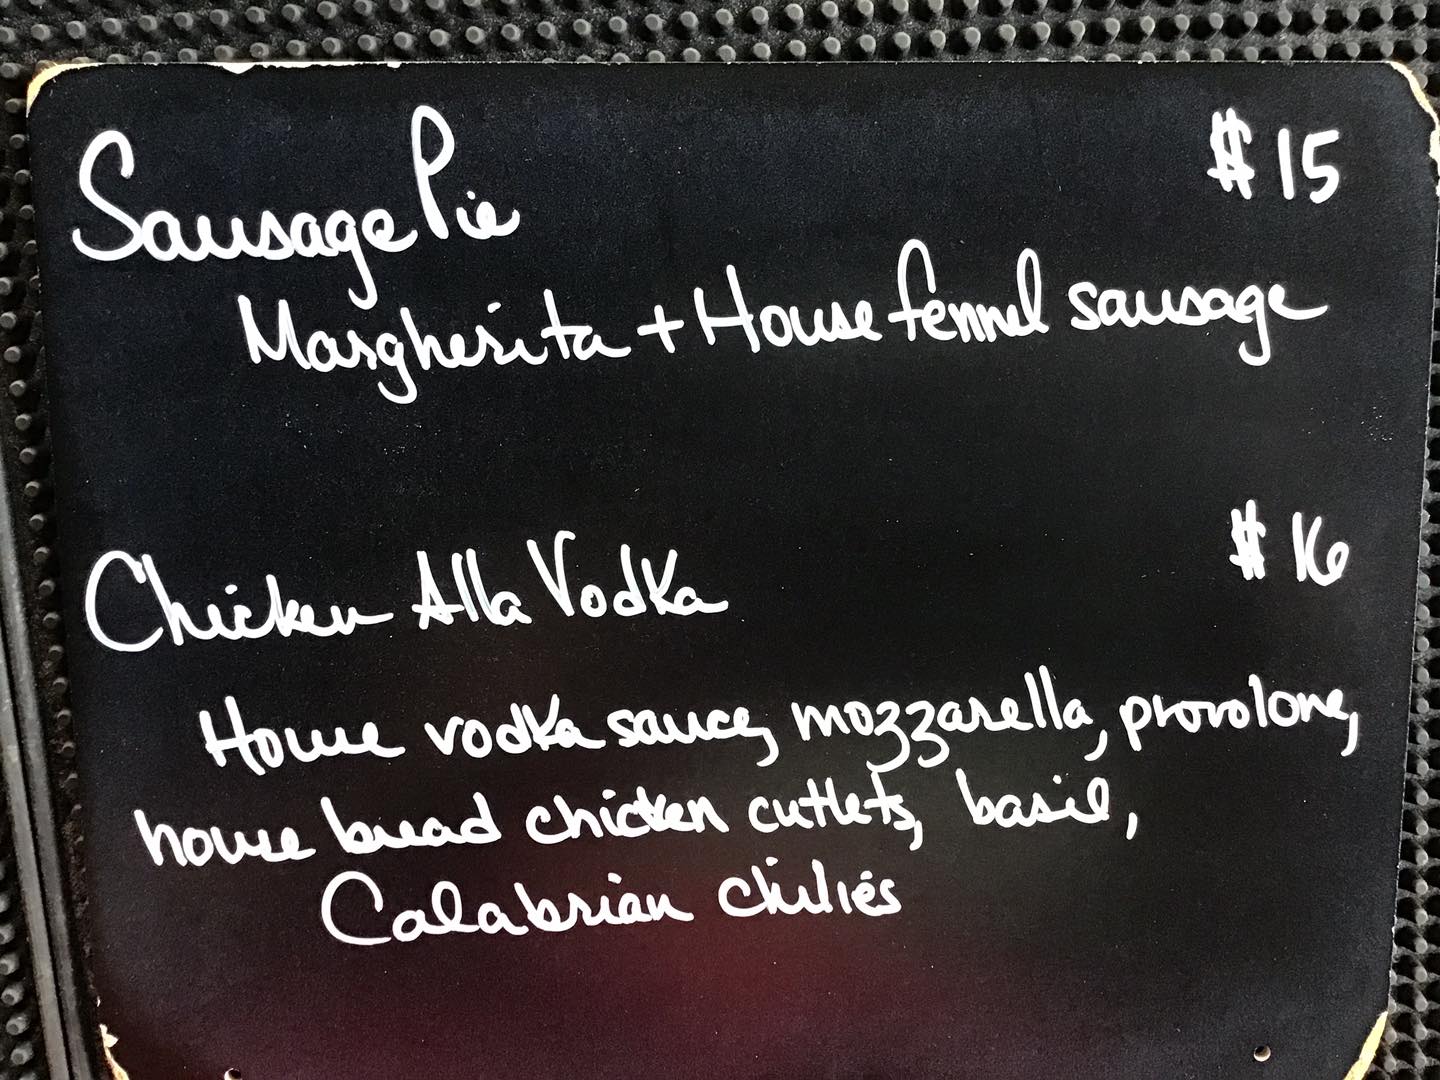 Sausage Pie $15
Margherita + House fennel sausage
Chicken Alla Vodka $16
House vodka sauce, mozzarella, provolone,
house bread chicken cutlets, basil,
Calabrian chilies